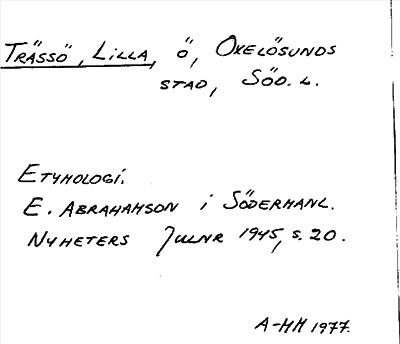 TRÄSSÖ, LILLA, Ö, OXELÖSUNDS
STAD, SÖD. L.
ETYMOLOGI.
E. ABRAHAMSON i SÖDERMANL.
NYHETERS JULNR 1945, S. 20.
A-HH 1977.